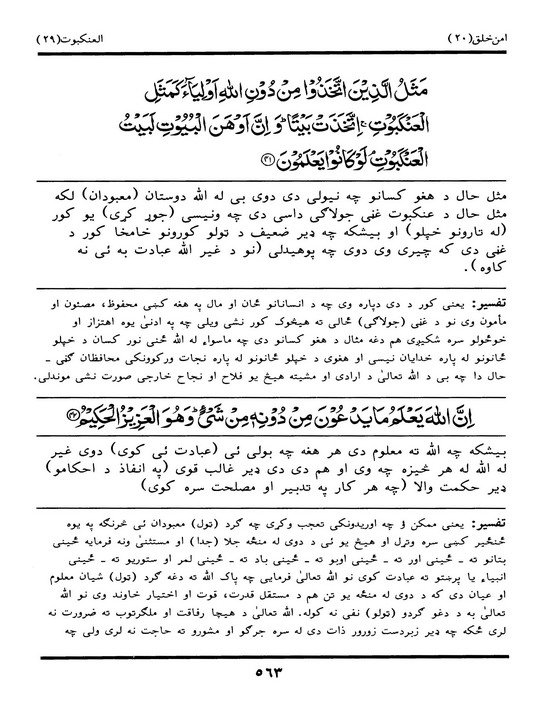 امن خلق (۲۰) العنکبوت (۲۹)
مَثَلُ الَّذِیْنَ اتَّخَذُوْا مِنْ دُوْنِ اللّٰهِ اَوْلِیَآءَ كَمَثَلِ
الْعَنْكَبُوْتِ ۚ اِتَّخَذَتْ بَیْتًا ؕ وَ اِنَّ اَوْهَنَ الْبُیُوْتِ لَبَیْتُ
الْعَنْكَبُوْتِ ۘ لَوْ كَانُوْا یَعْلَمُوْنَ ﴿۴۱﴾
مثل حال د هغو کسانو چه نیولی دی دوی بی له الله دوستان (معبودان) لکه
مثل حال د عنکبوت غنی جولاگی داسی دی چه ونیسی (جوړ کړی) یو کور
(له تارونو خپلو) او بیشکه چه ډیر ضعیف د ټولو کورونو خامخا کور د
غنی دی که چیری وی دوی چه پوهیدلی (نو د غیر الله عبادت به ئی نه
کاوه).
تفسیر: یعنی کور د دی دپاره وی چه د انسانانو ځان او مال په هغه کښی محفوظ، مصئون او
مأمون وی نو د غنی (جولاگی) ځالی ته هیڅوک کور نشی ویلی چه په ادنیٰ یوه اهتزاز او
خوځولو سره شکیږی هم دغه مثال د هغو کسانو دی چه ماسواء له الله ځنی نور کسان د خپلو
ځانونو له پاره خدایان نیسی او هغوی د خپلو ځانونو له پاره نجات ورکوونکی محافظان گڼی ــ
حال دا چه بی د الله تعالیٰ د ارادی او مشیته هیڅ یو فلاح او نجاح خارجی صورت نشی موندلی.
اِنَّ اللّٰهَ یَعْلَمُ مَا یَدْعُوْنَ مِنْ دُوْنِهٖ مِنْ شَیْءٍ ؕ وَ هُوَ الْعَزِیْزُ الْحَكِیْمُ ﴿۴۲﴾
بیشکه چه الله ته معلوم دی هر هغه چه بولی ئی (عبادت ئی کوی) دوی غیر
له الله له هر څیزه چه وی او هم دی دی ډیر غالب قوی (په انفاذ د احکامو)
ډیر حکمت والا (چه هر کار په تدبیر او مصلحت سره کوی)
تفسیر: یعنی ممکن ؤ چه اوریدونکی تعجب وکړی چه گرد (ټول) معبودان ئی څرنگه په یوه
ځنځیر کښی سره وتړل او هیڅ یو ئی د دوی له منځه جلا (جدا) او مستثنیٰ ونه فرمایه ځینی
بتانو ته ــ ځینی اور ته ــ ځینی اوبو ته ــ ځینی باد ته ــ ځینی لمر او ستوریو ته ــ ځینی
انبیاء یا پرښتو ته عبادت کوی نو الله تعالیٰ فرمایی چه پاک الله ته دغه گرد (ټول) شیان معلوم
او عیان دی که د دوی له منځه یو تن هم د مستقل قدرت، قوت او اختیار خاوند وی نو الله
تعالیٰ به د دغو گردو (ټولو) نفی نه کوله. الله تعالیٰ د هیچا رفاقت او ملگرتوب ته ضرورت نه
لری ځکه چه ډیر زبردست زورور ذات دی له سره جرگو او مشورو ته حاجت نه لری ولی چه
۵۶۳